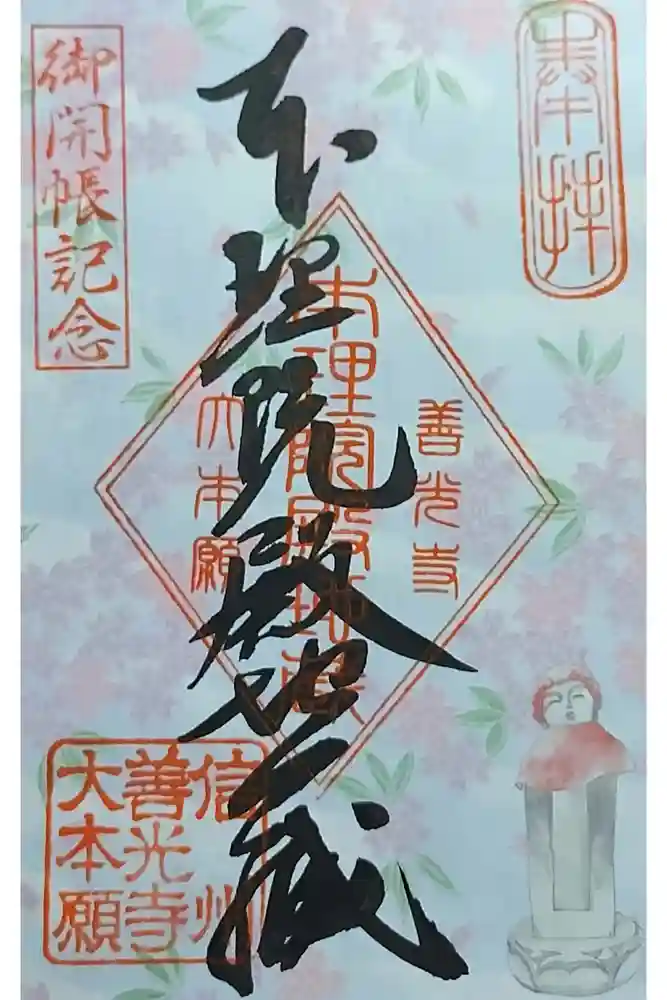 奉拝
善光寺
本理院殿地蔵
本理院殿地蔵
大本願
御開帳記念
信州
善光寺
大本願